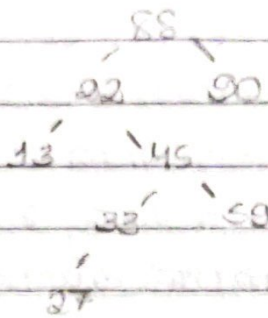 88
22 90
13 45
33 59
27